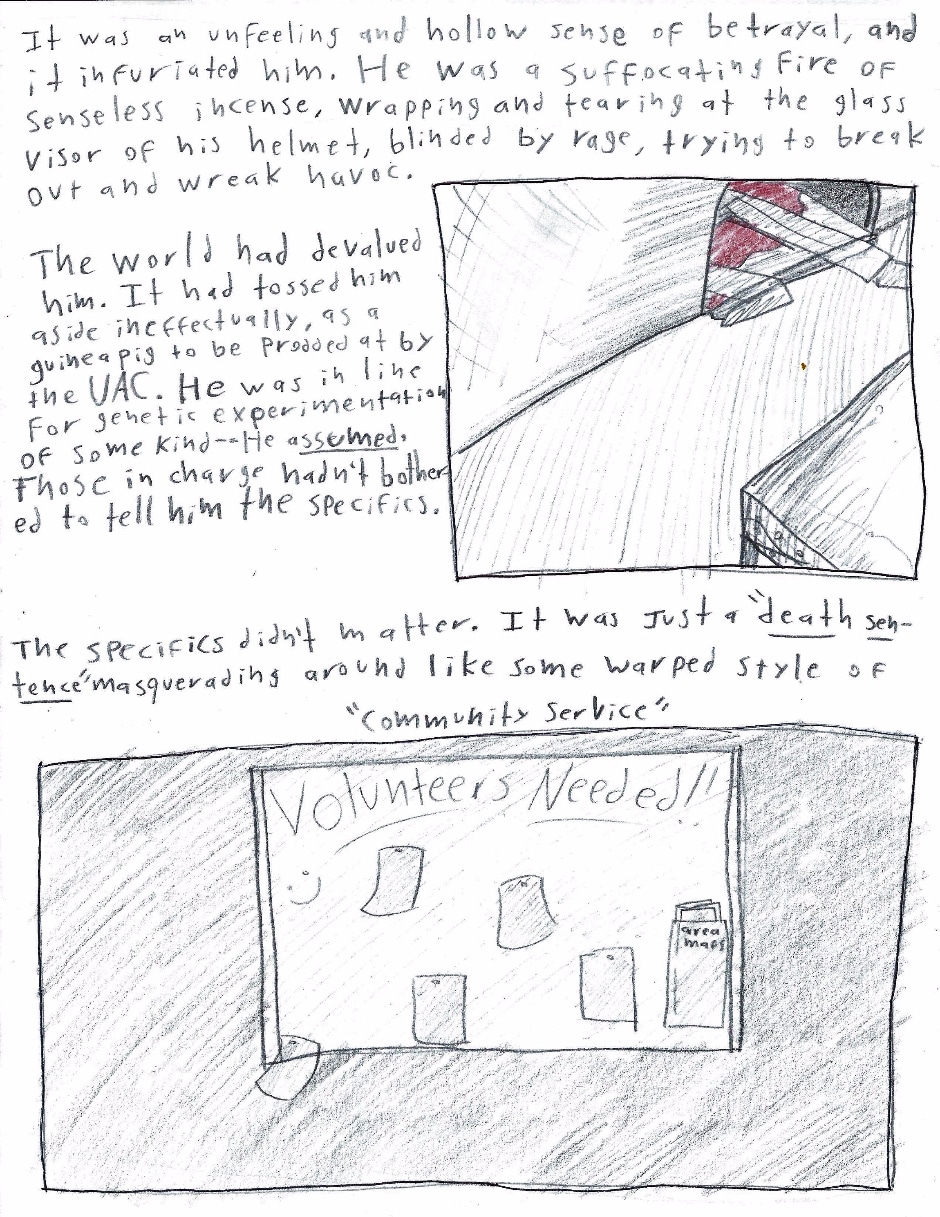 It was an unfeeling and hollow sense of betrayal, and
it infuriated him. He was a suffocating fire of
senseless incense, wrapping and tearing at the glass
visor of his helmet, blinded by rage, trying to break
out and wreak havoc.
The world had devalued
him. It had tossed him
aside ineffectually, as a
guinea pig to be prodded at by
the UAC. He was in line
for genetic experimentation
of some kind--He assumed.
Those in charge hadn't bother-
ed to tell him the specifics.
The specifics didn't matter. It was just a "death sen-
tence" masquerading around like some warped style of
"Community Service"
Volunteers Needed!!
area
maps